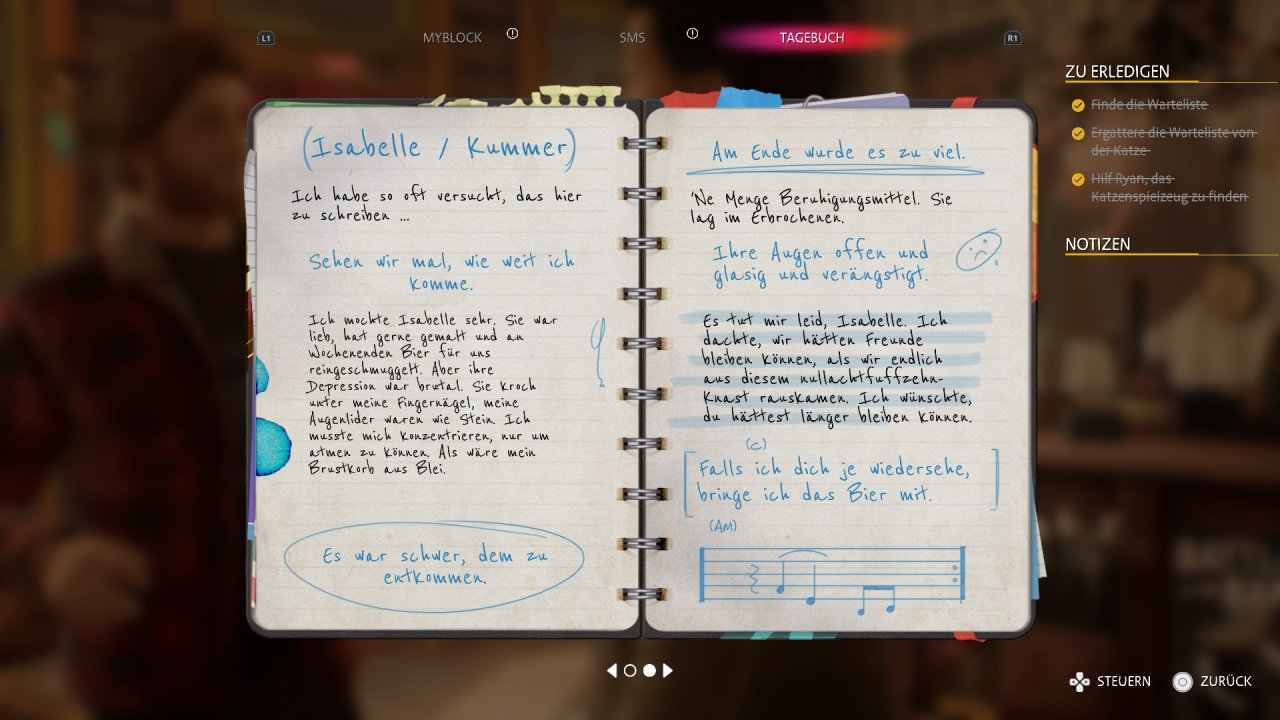 L1
MYBLOCK
SMS
TAGEBUCH
R1
(Isabelle / Kummer)
Ich habe so oft versucht, das hier
zu schreiben ...
Sehen wir mal, wie weit ich
komme.
Ich mochte Isabelle sehr. Sie war
lieb, hat gerne gemalt und an
Wochenenden Bier für uns
reingeschmuggelt. Aber ihre
Depression war brutal. Sie kroch
unter meine Fingernägel, meine
Augenlider waren wie Stein. Ich
musste mich konzentrieren, nur um
atmen zu können. Als wäre mein
Brustkorb aus Blei.
Es war schwer, dem zu
entkommen.
Am Ende wurde es zu viel.
'Ne Menge Beruhigungsmittel. Sie
lag im Erbrochenen.
Ihre Augen offen und
glasig und verängstigt.
Es tut mir leid, Isabelle. Ich
dachte, wir hätten Freunde
bleiben können, als wir endlich
aus diesem nullachtfuffzehn-
Knast rauskamen. Ich wünschte,
du hättest länger bleiben können.
(C)
[Falls ich dich je wiedersehe,
bringe ich das Bier mit.]
(Am)
ZU ERLEDIGEN
Finde die Warteliste
Ergattere die Warteliste von
der Katze
Hilf Ryan, das
Katzenspielzeug zu finden
NOTIZEN
STEUERN
ZURÜCK